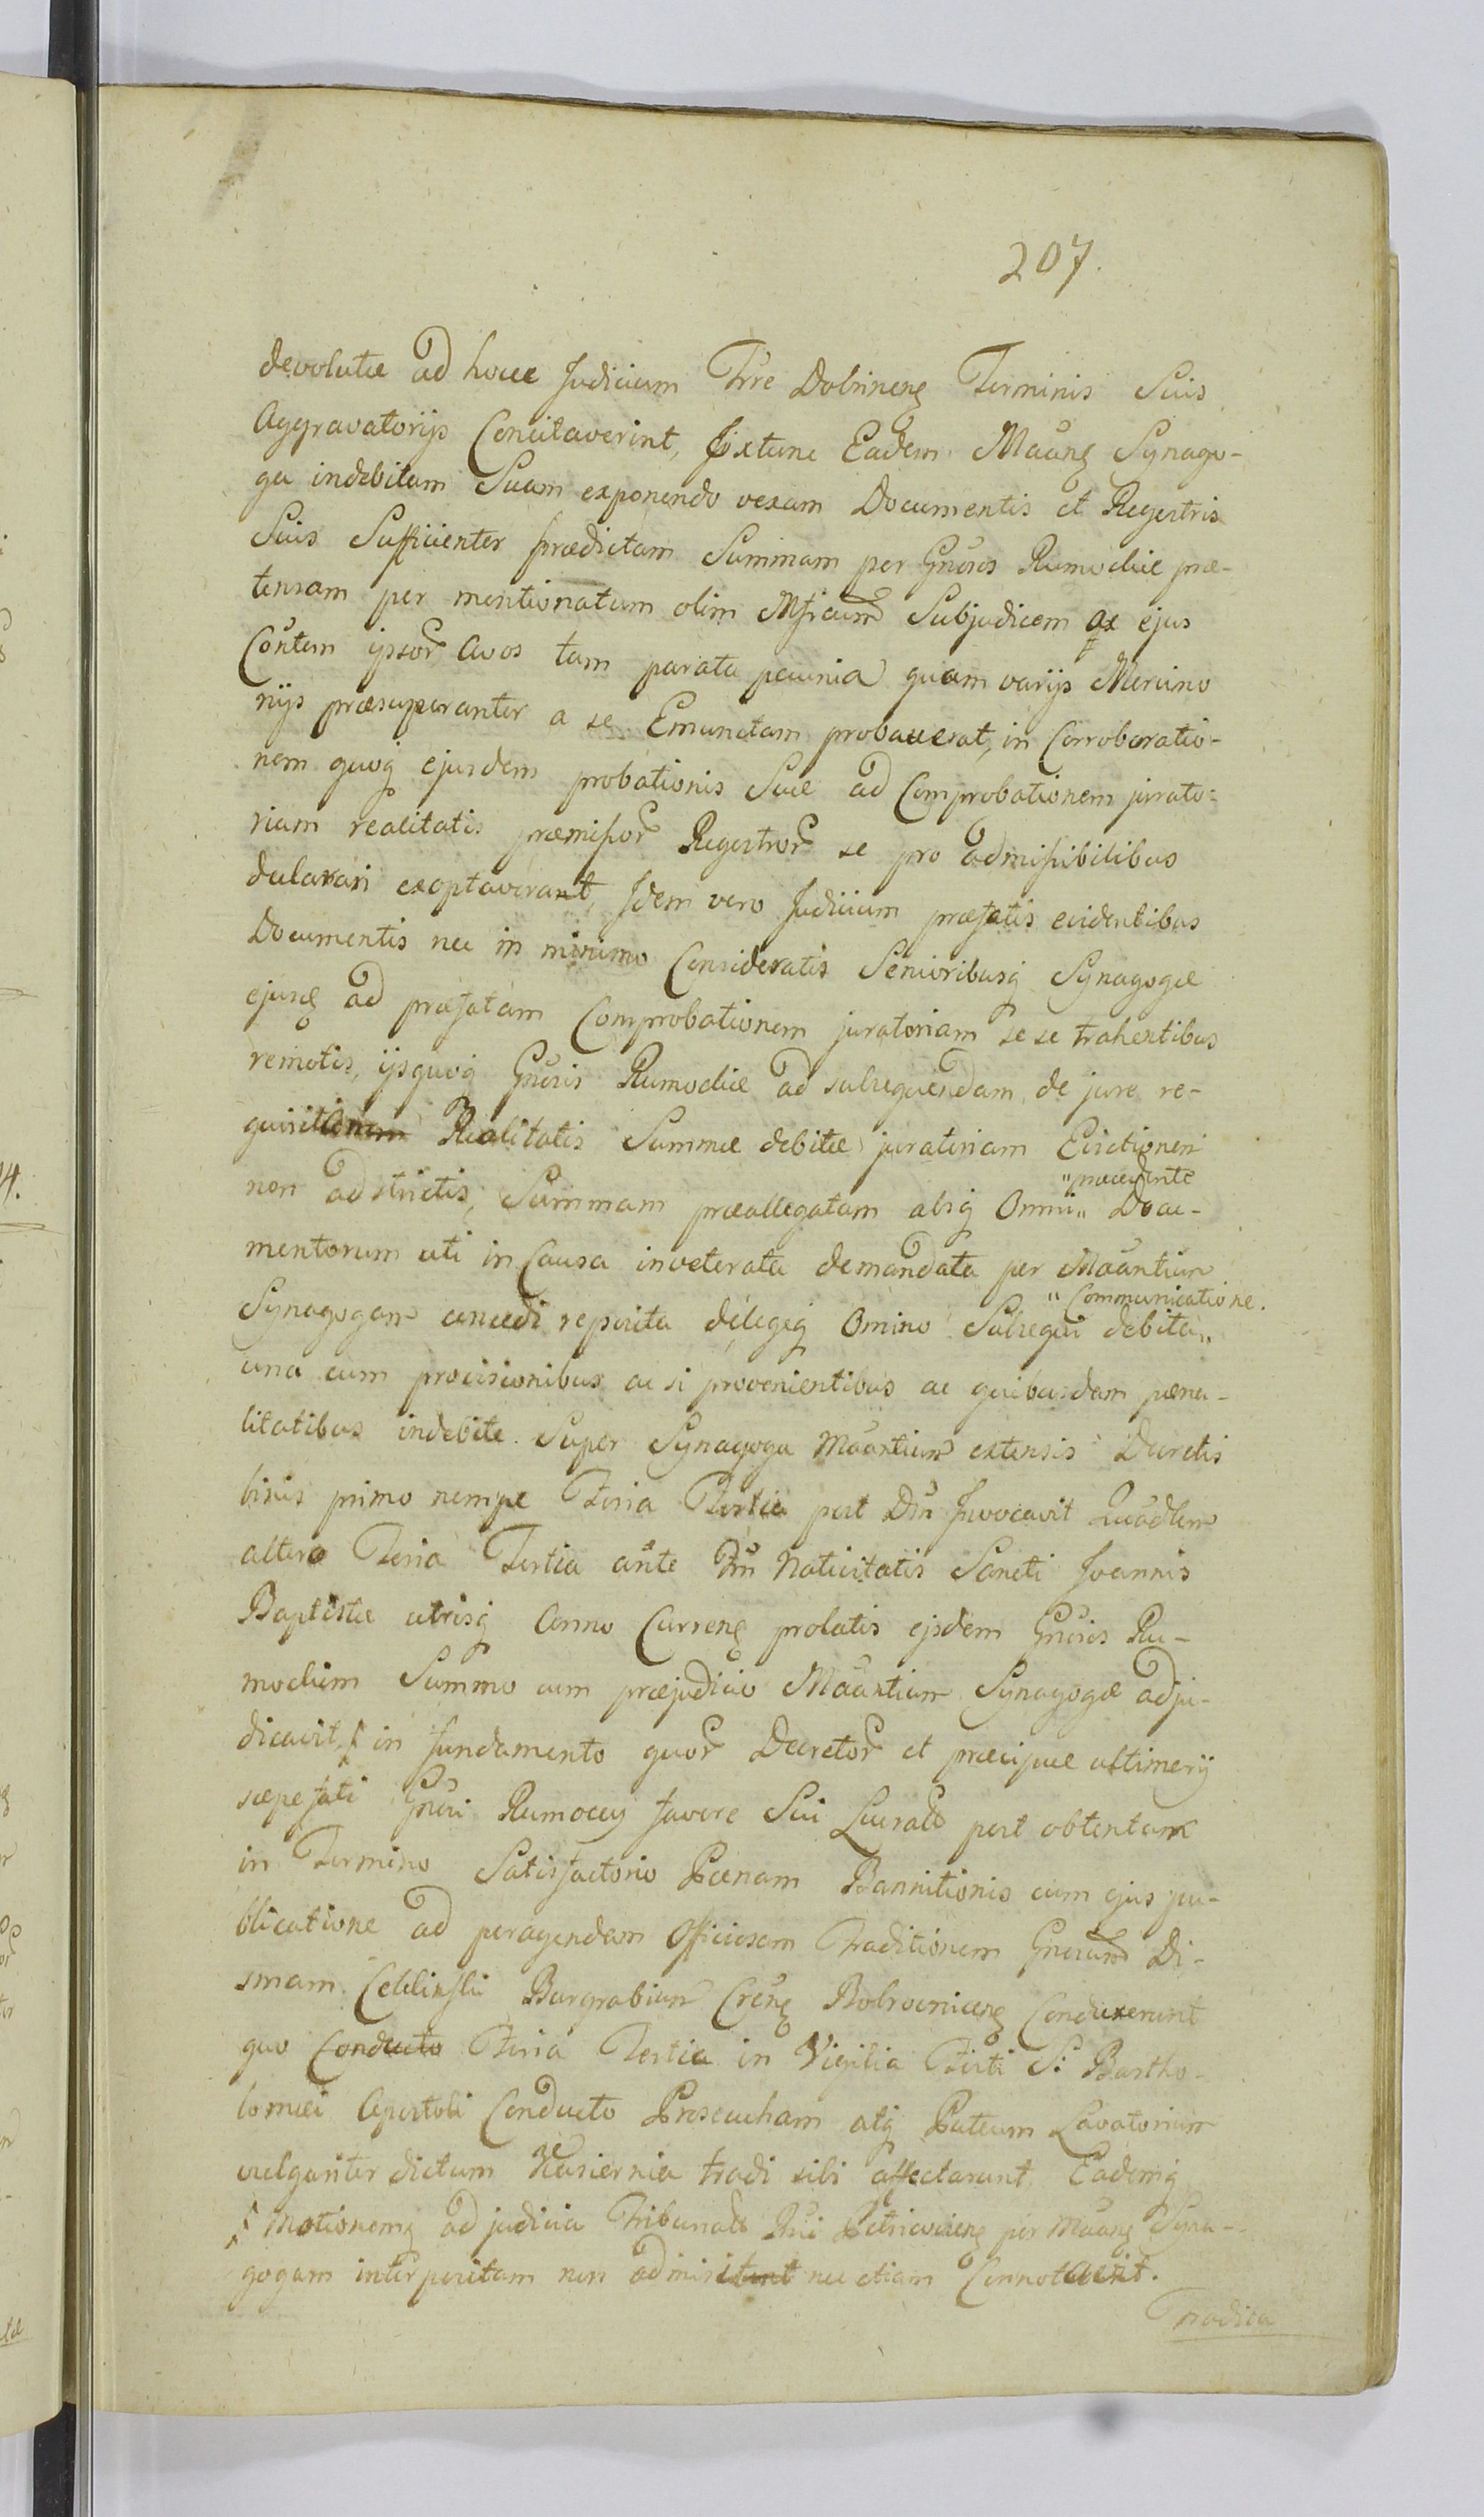 207.
devolutæ ad hocce Judicium Trre Dobrinens Terminis Suis
Aggravatorijs Concitaverint, Extunc Eadem Maans Synago-
ga indebitam Suam exponendo vexam Documentis et Regestris
Suis Sufficienter prædictam Summam per Gnosos Rumockie præ-
tensam per mentionatum olim Mficum Subjudicem ejus
Contem ipsor Avos tam parata pecunia quam varijs Mercimo
nijs præsuperanter a se Emunctam probauerat, in Corroboratio-
nem quoq ejusdem probationis Suæ ad Comprobationem jurato-
riam realitatis præmissor Regestror se pro admissibilibus
declarari exoptaverant, Idem vero Judicium præfatis evidentibus
Documentis nec in minimo Consideratis Senioribusq Synagogæ
ejusd ad præfatam Comprobationem juratoriam se se trahentibus
remotis, ijsquoq Gnosis Rumockie ad subsequendam de jure re-
quisitionem Realitatis Summæ debitæ juratoriam Evictionem
non adstrictis, Summam præallegatam absq Omni " Docu-
"præcedente
mentorum uti in Causa inveterata demandata per Maantium
"Communicatione.
Synagogam concedi reperita delegeq Omino Subsequi debita"
una cum provisionibus ac si provenientibus ac quibusdam pæna-
litatibus indebite Super Synagoga Maantium extensis Decretis
binis primo nempe Feria Tertia post Dm Invocavit Quadlem
altero Feria Tertia ante Ftm Nativitatis Sancti Joannis
Baptistæ utrisq Anno Currens prolatis ejsdem Gnosis Ru-
mockim Summo cum præjudicio Maantium Synagogæ adju-
dicavit, in fundamento quor Decretor et præcipue ultimerij
sæpefati Gnosi Rumoccy favore Sui Lucrato post obtentam
in Termino Satisfactorio Pænam Bannitionis cum ejus pu-
blicatione ad peragendam Officiosam Traditionem Gnosum Di-
smam Celiński Burgrabium Crens Bobrovnicens Conduxerunt
quo Conducto Feria Tertia in Vigilia Festi S: Bartho-
lomæi Apostoli Conducto Proseucham atq Puteum Lavatorium
vulgariter dictum tradi sibi affectarunt, Eademq
Motionemq ad judicia Tribunals Rni Petricoviens per Maans Syna-
gogam interpositam non admisitent nec etiam Connotavit.
Tradita